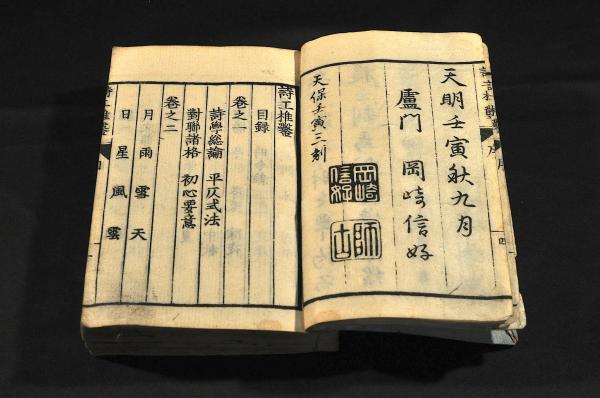 天明壬寅秋九月
盧門 岡崎信好
岡崎信好
師古
天保壬寅三刻
詩工推鑿
目録
卷之一
詩學総論 平仄式法
對聯諸格 初心要意
卷之二
月 雨 雪 天
日 星 風 雲